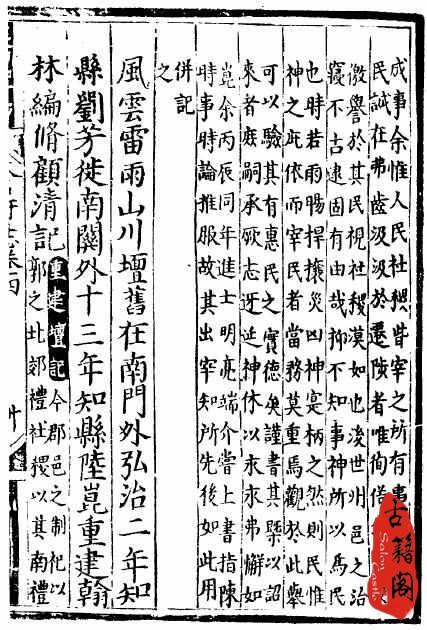 成事余惟人民社稷皆宰之所有事
民誠在弗齒汲汲於遷陟者唯徇
微譽於其民視社稷漠如也後世州邑之治
寖不古逮固有由哉抑不知事神所以為民
也時若雨暘捍攘災凶神寔柄之然則民惟
神之庇依而宰民者當務莫重焉觀於此舉
可以驗其有惠民之實德矣謹書其槩以詔
來者庭嗣承厥志迓延神休以永永弗懈如
崑余丙辰同年進士明亮端介嘗上書指陳
時事時論推服故其出宰知所先後如此用
併記
之
風雲雷雨山川壇舊在南門外弘治二年知
縣劉芳徙南關外十三年知縣陸崑重建翰
林編脩顧清記重建壇記今郡邑之制祀以
郭之北郊禮社稷以其南禮
卷四
十
古籍阁